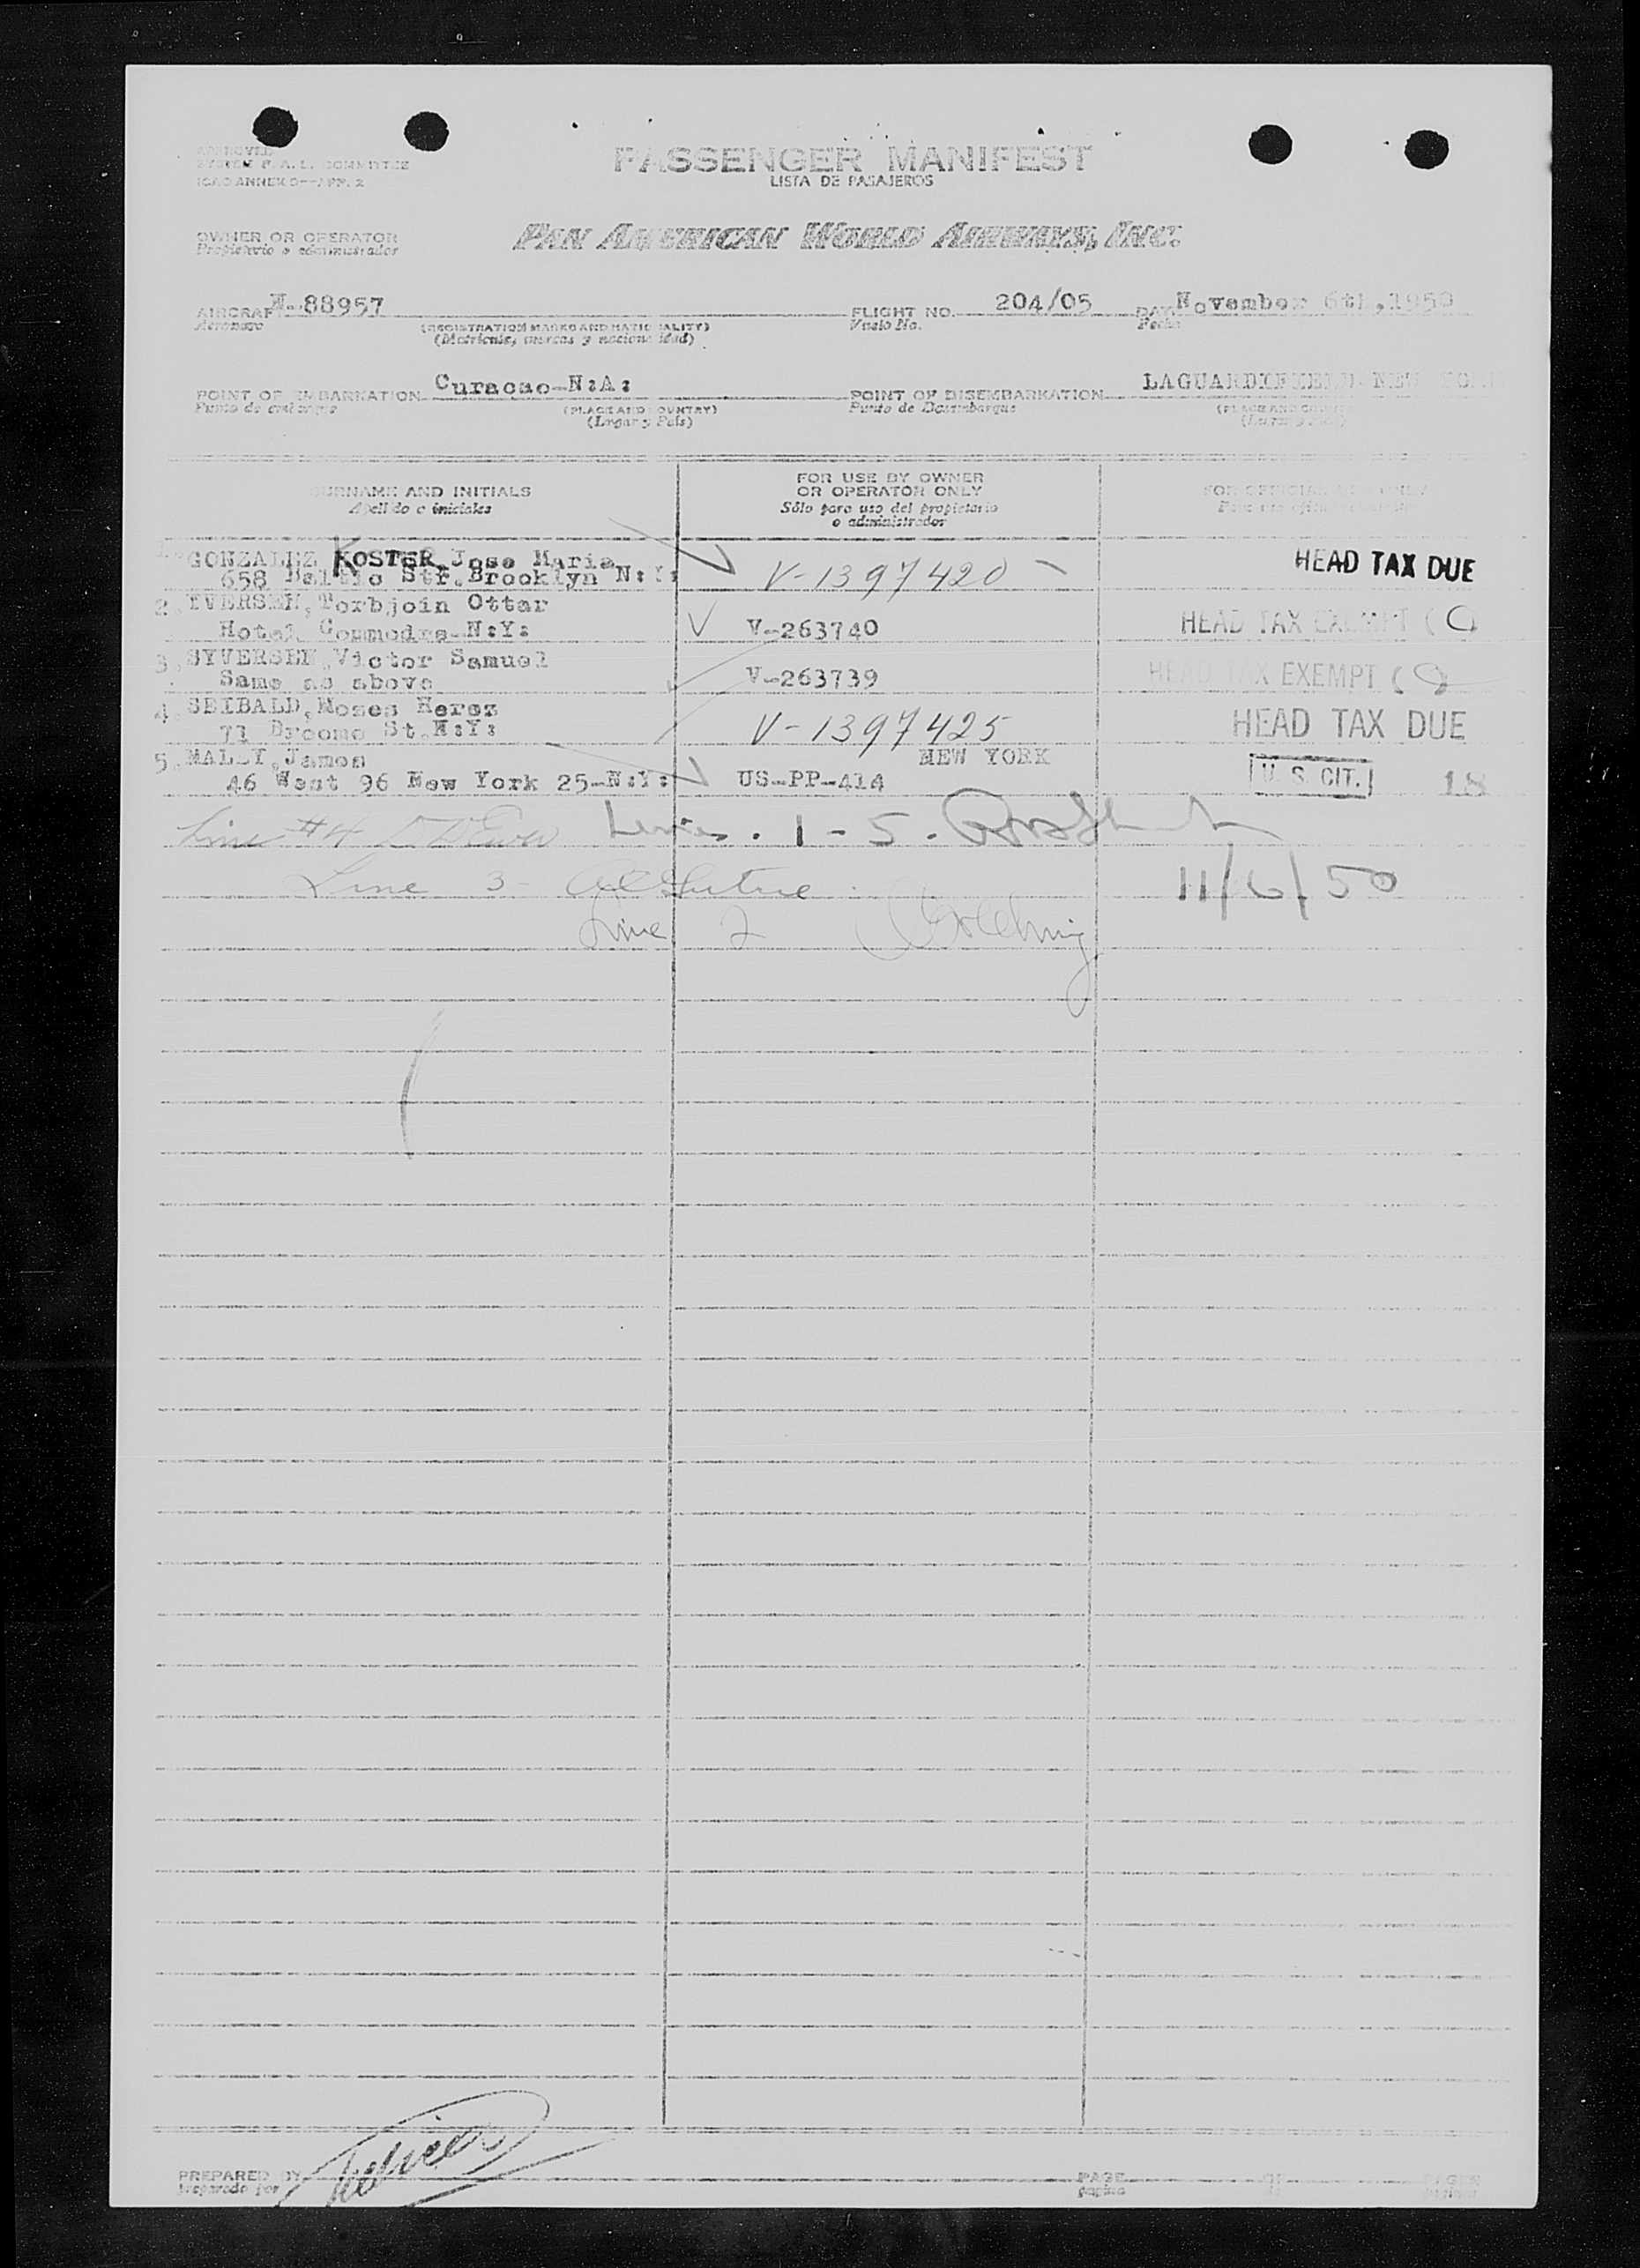 APPROVED
SYSTEM F.A.L. COMMITTEE
ICAO ANNEX 9--APP. 2
PASSENGER MANIFEST
LISTA DE PASAJEROS
OWNER OR OPERATOR
Propietario o administrador
PAN AMERICAN WORLD AIRWAYS, INC.
AIRCRAFT N-88957
Aeronave
(REGISTRATION MARKS AND NATIONALITY)
(Matrícula, marcas y nacionalidad)
FLIGHT NO. 204/05
Vuelo No.
DAY November 6th,1950
Fecha
POINT OF EMBARKATION Curacao-N:A:
Punto de embarque
(PLACE AND COUNTRY)
(Lugar y País)
POINT OF DISEMBARKATION LAGUARDIFIELD NEW YORK
Punto de Desembarque
(PLACE AND COUNTRY)
(Lugar y País)
SURNAME AND INITIALS
Apellido e iniciales
FOR USE BY OWNER
OR OPERATOR ONLY
Sólo para uso del propietario
o administrador
FOR OFFICIAL USE ONLY
1. GONZALEZ KOSTER, Jose Maria V-1397420 HEAD TAX DUE
658 Baltic Str. Brooklyn N:Y:
2. IVERSEN, Torbjoin Ottar
Hotel Commodre-N:Y: V-263740 HEAD TAX EXEMPT (
3. SYVERSEN, Victor Samuel
Same as above V-263739 HEAD TAX EXEMPT (
4. SEIBALD, Moses Herez
71 Broome St. N:Y: V-1397425 HEAD TAX DUE
5. MALLY, James NEW YORK
46 West 96 New York 25-N:Y: US-PP-414 U. S. CIT. 18
Line #4
Lines . 1 - 5 .
Line 3
11/6/50
Line 2
PREPARED BY
Preparado por
PAGE
página
OF
PAGES